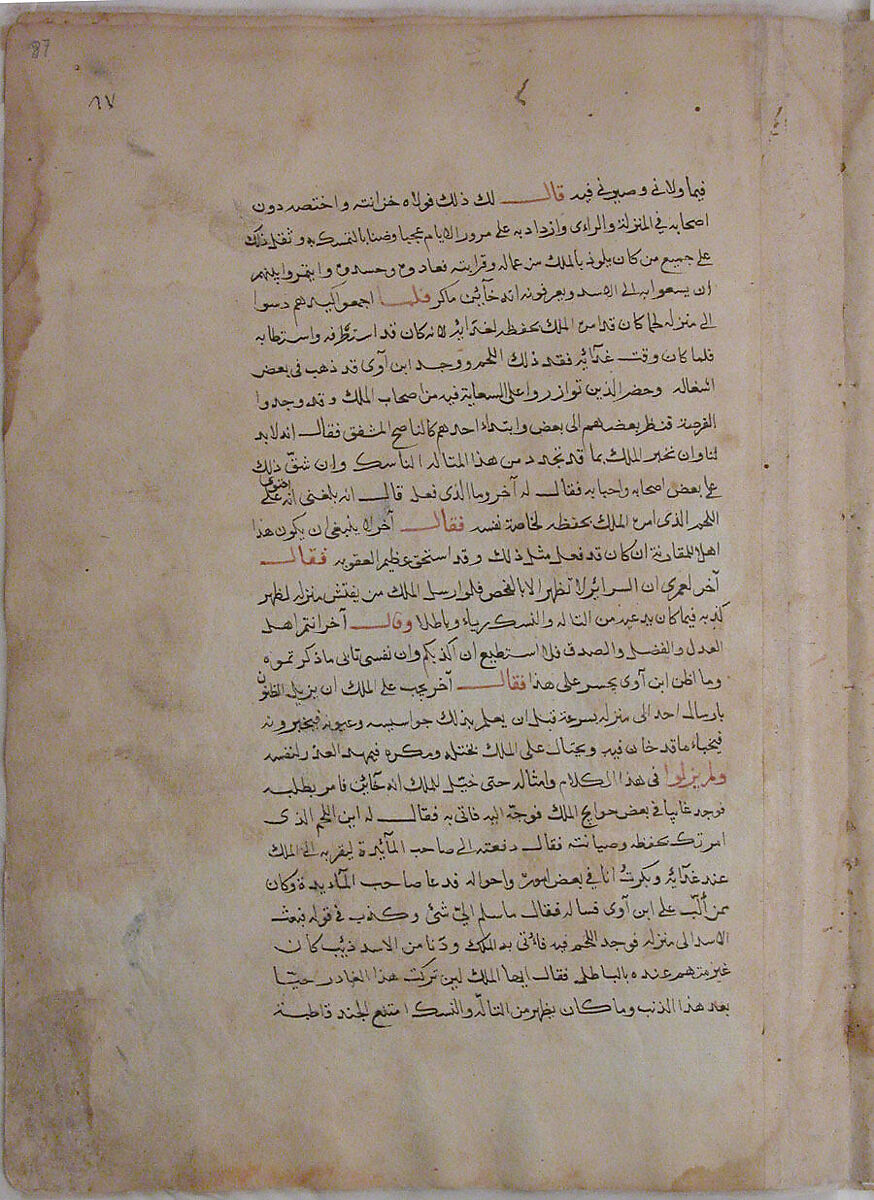 87
٨٧
فيما ولاني وصيرني فيه قال لك ذلك فولاه خزانته واختصه دون
اصحابه في المنزلة والراءى وازداد به على مرور الايام عجبا وضنا بالتمسك به وثقل ذلك
على جميع من كان يلوذ بالملك من عماله وقرابته فعادوه وحسدوه وايتمروا بينهم
ان يسعوا به الى الاسد ويعرفونه انه خآئن ماكر فلما اجمعوا كيدهم دسوا
الى منزله لحما كان قد امره الملك بحفظه لغدآئه لانه كان قد استظرفه واستطابه
فلما كان وقت غدآئه فقد ذلك اللحم ووجد ابن آوى قد ذهب في بعض
اشغاله وحضر الذين توازروا على السعاية فيه من اصحاب الملك وقد وجدوا
الفرصة فنظر بعضهم الى بعض وابتداء احدهم كالناصح المشفق فقال انه لا بد
لنا وان نخبر الملك بما قد تجدد من هذا المتاله الناسك وان شقّ ذلك
على بعض اصحابه واحبابه فقال له آخر وما الذى فعل قال انه بلغنى انه على
اللحم الذى امره الملك بحفظه لخاصة نفسه فقال آخر لا ينبغى ان يكون هذا
اهلا للمقارنة ان كان قد فعل مثل ذلك وقد استحق عظيم العقوبه فقال
آخر لعمرى ان السرائر لا تظهر الا بالفحص فلو ارسل الملك من يفتش منزله لظهر
كذبه فيما كان يدعيه من التاله والنسك رياء وباطلا وقال آخر انتم اهل
العدل والفضل والصدق فلا استطيع ان اكذبكم وان نفسى تابى ما ذكرتموه
وما اظن ابن آوى يجسر على هذا فقال آخر يجب على الملك ان يزيل الظنون
بارسال احد الى منزله بسرعة قبل ان يعلم بذلك جواسيسه وعيونه فيخبرونه
فيخباء ما قد خان فيه ويحتال على الملك بختله ومكره فيمهد العذر لنفسه
ولم يزلوا فى هذا الكلام وامثاله حتى خيّل للملك انه خآئن فامر بطلبه
فوجد غايبا في بعض حوايج الملك فوجّه اليه فاتى به فقال له اين اللحم الذى
امرتك بحفظه وصيانته فقال دفعته الى صاحب المآئدة ليقربه الى الملك
عند غدآيه وبكرتُ انا في بعض اموره واحواله فدعا صاحب المآيدة وكان
ممن ألّب على ابن آوى فساله فقال ما سلم اليّ شئ وكذب في قوله فبعث
الاسد الى منزله فوجد اللحم فيه فاءتى به الملك ودنا من الاسد ذئب كان
غير متهم عنده بالباطل فقال ايها الملك لين تركت هذا الغادر حيّا
بعد هذا الذنب وما كان يظهر من التالّه والنسك امتنع الجند قاطبة